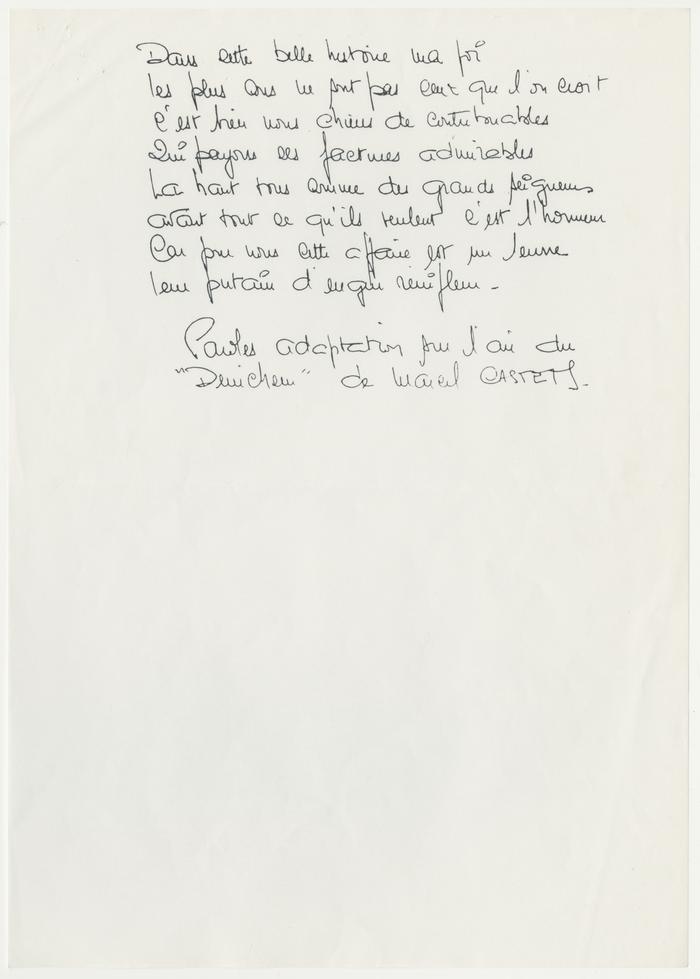 Dans cette belle histoire ma foi
les plus cons ne sont pas ceux que l'on croit
C'est bien nous chiens de contribuables
Qui payons ces factures admirables
La haut tous comme des grands seigneurs
avant tout ce qu'ils veulent c'est l'honneur
Car pour nous cette affaire est un leurre
leur putain d'engin renifleur -
Paroles adaptation sur l'air du
"Denicheur" de Marcel CASTETS -